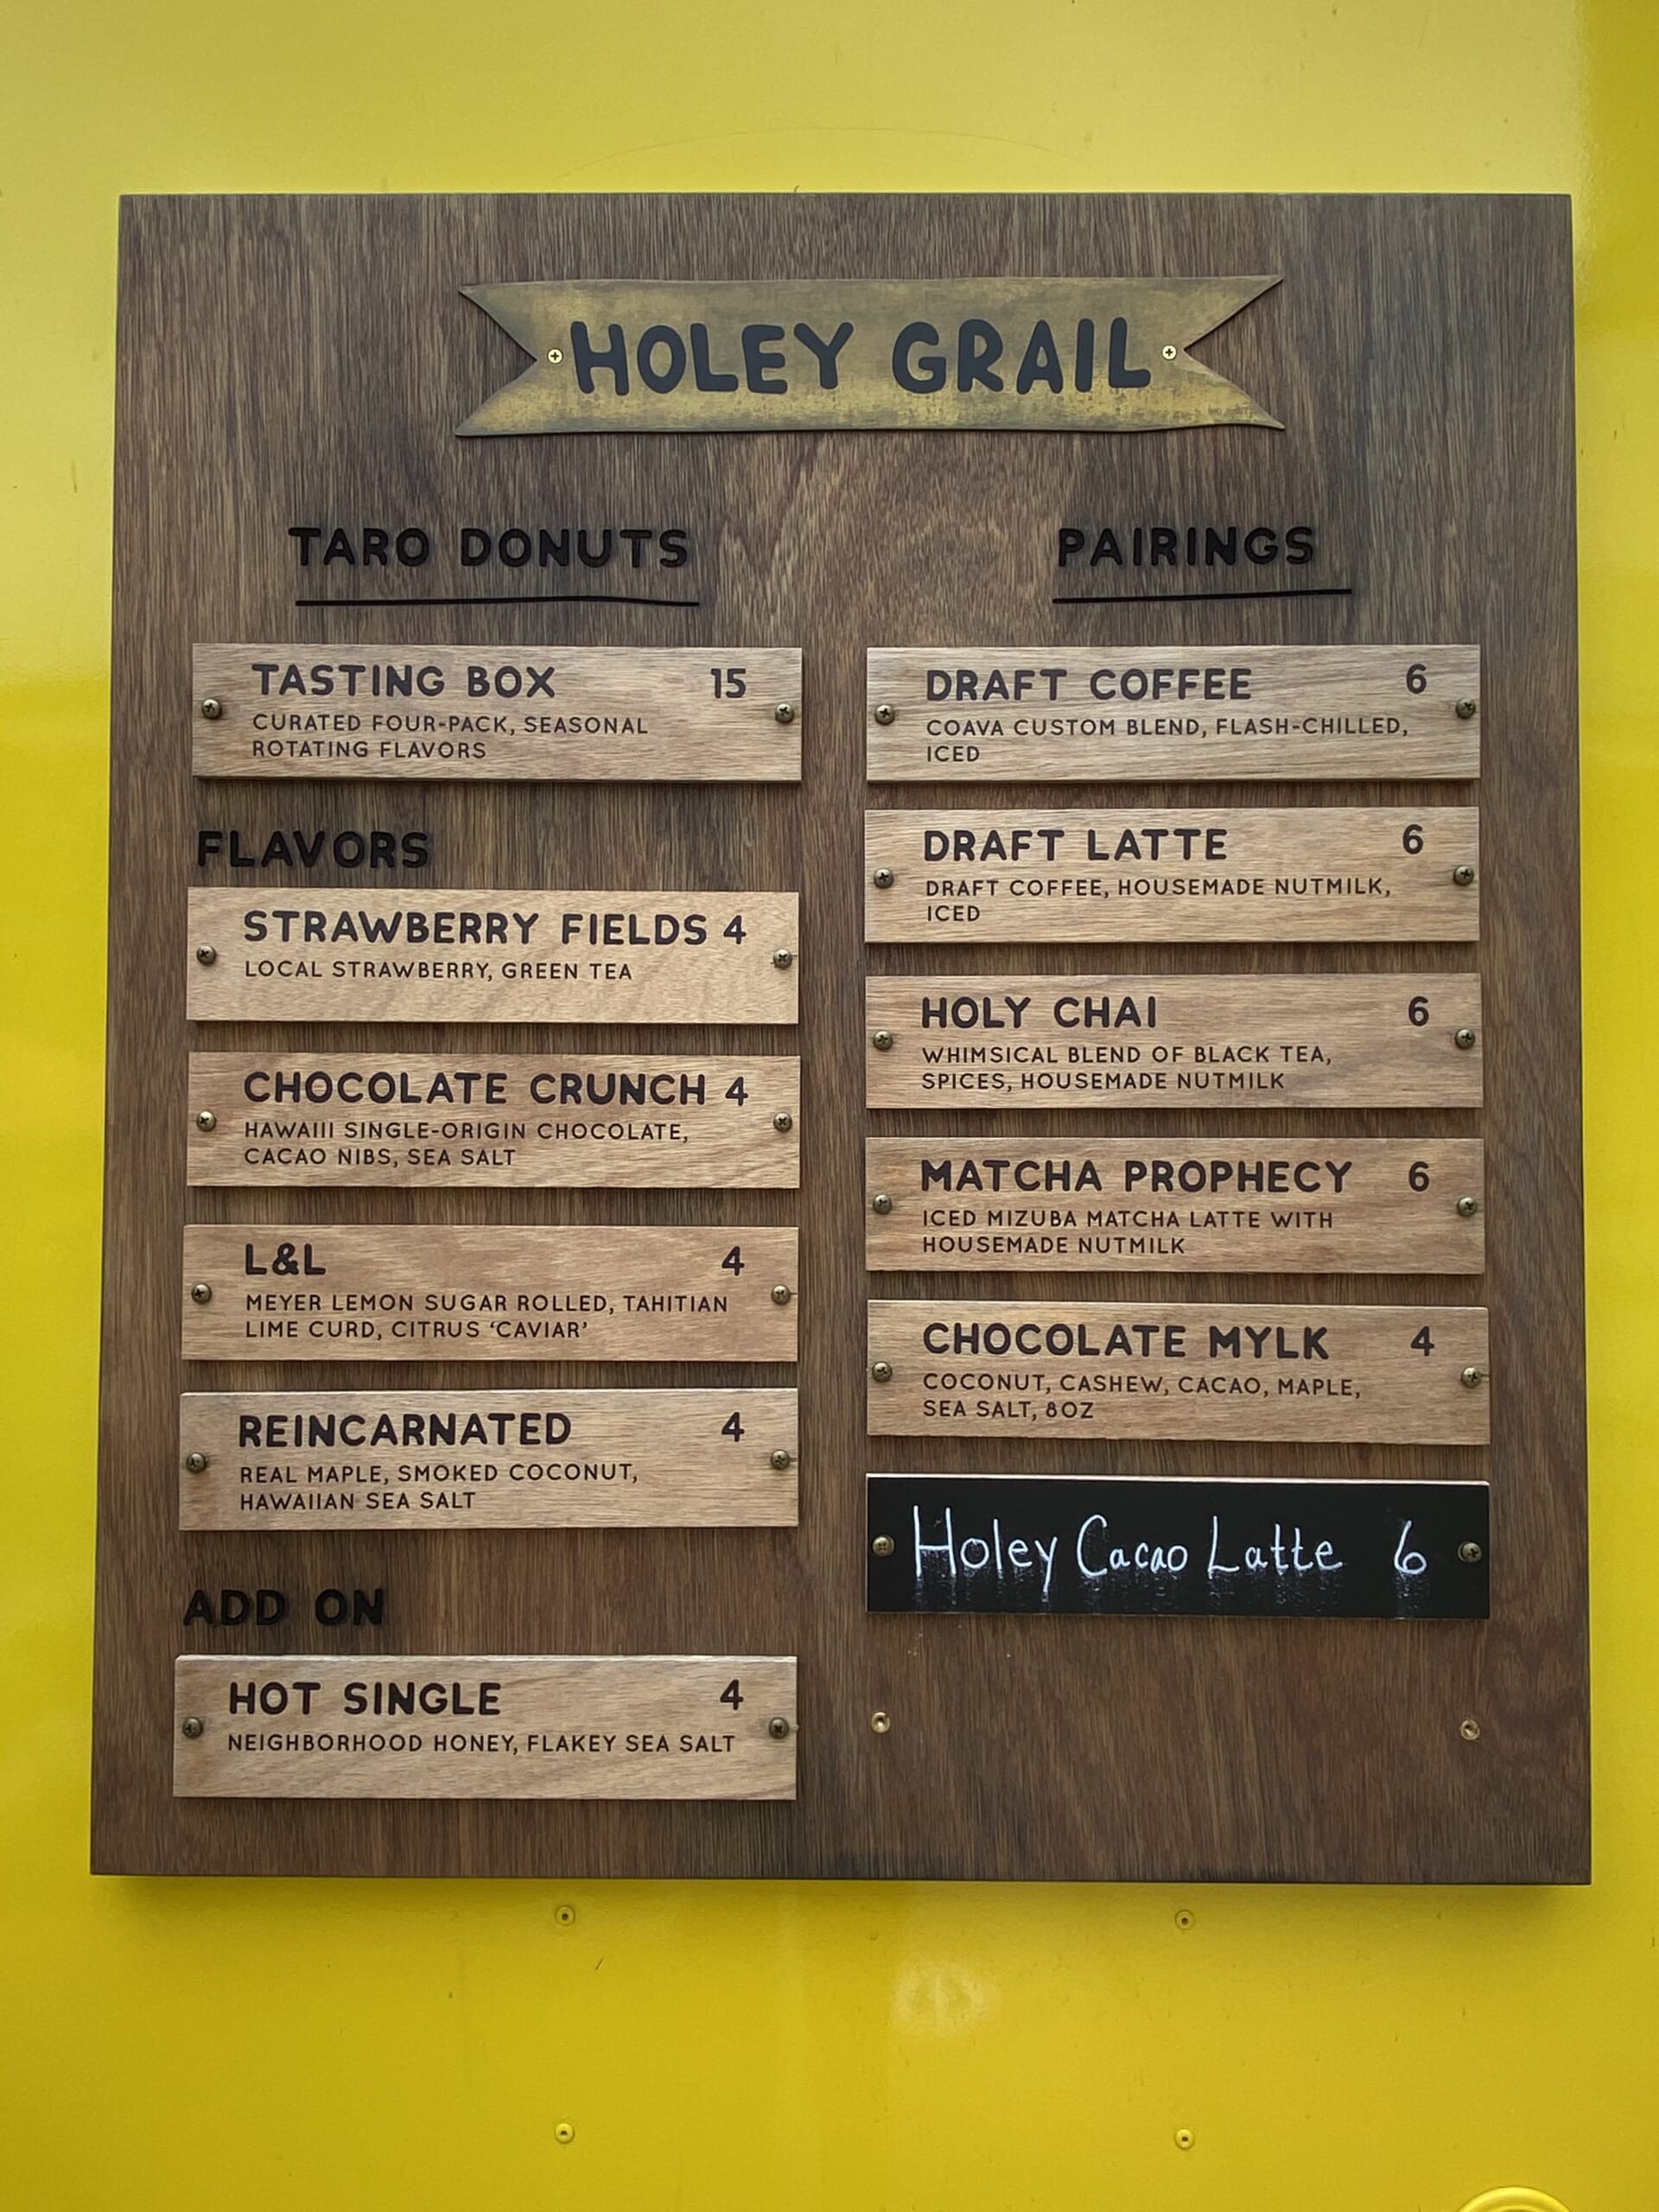 HOLEY GRAIL
TARO DONUTS
TASTING BOX 15
CURATED FOUR-PACK, SEASONAL
ROTATING FLAVORS
FLAVORS
STRAWBERRY FIELDS 4
LOCAL STRAWBERRY, GREEN TEA
CHOCOLATE CRUNCH 4
HAWAIII SINGLE-ORIGIN CHOCOLATE,
CACAO NIBS, SEA SALT
L&L 4
MEYER LEMON SUGAR ROLLED, TAHITIAN
LIME CURD, CITRUS ‘CAVIAR’
REINCARNATED 4
REAL MAPLE, SMOKED COCONUT,
HAWAIIAN SEA SALT
ADD ON
HOT SINGLE 4
NEIGHBORHOOD HONEY, FLAKEY SEA SALT
PAIRINGS
DRAFT COFFEE 6
COAVA CUSTOM BLEND, FLASH-CHILLED,
ICED
DRAFT LATTE 6
DRAFT COFFEE, HOUSEMADE NUTMILK,
ICED
HOLY CHAI 6
WHIMSICAL BLEND OF BLACK TEA,
SPICES, HOUSEMADE NUTMILK
MATCHA PROPHECY 6
ICED MIZUBA MATCHA LATTE WITH
HOUSEMADE NUTMILK
CHOCOLATE MYLK 4
COCONUT, CASHEW, CACAO, MAPLE,
SEA SALT, 8OZ
Holey Cacao Latte 6